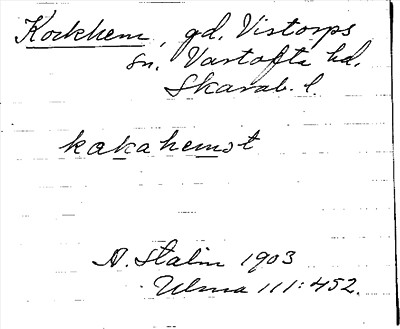 Korkhem, gd, Vistorps
sn, Vartofta hd.
Skarab. l.
kakahemat
A. Stalin 1903
Ulma 111:452.